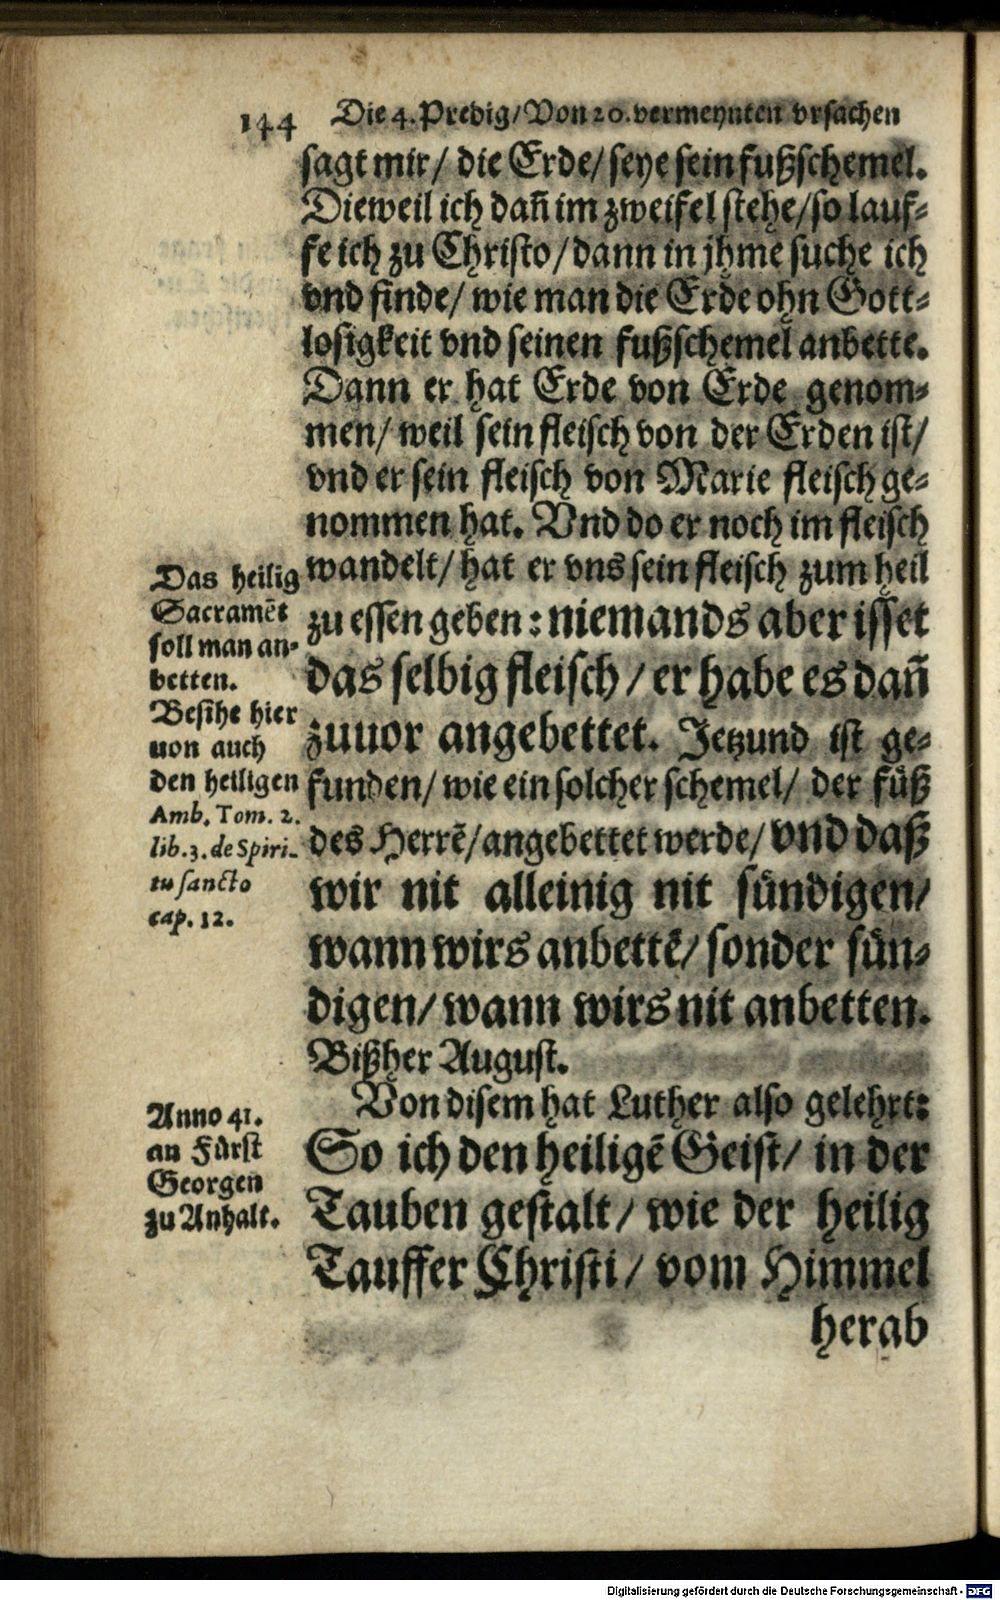 144 Die 4. Predig/ Von 20. vermeynten vrsachen
sagt mir/ die Erde/ seye sein fußschemel.
Dieweil ich dañ im zweifel stehe/ so lauf-
fe ich zu Christo/ dann in jhme suche ich
vnd finde/ wie man die Erde ohn Gott-
losigkeit vnd seinen fußschemel anbette.
Dann er hat Erde von Erde genom-
men/ weil sein fleisch von der Erden ist/
vnd er sein fleisch von Marie fleisch ge-
nommen hat. Vnd do er noch im fleisch
wandelt/ hat er vns sein fleisch zum heil
zu essen geben: niemands aber isset
das selbig fleisch/ er habe es dañ
zuuor angebettet. Jetzund ist ge-
funden/ wie ein solcher schemel/ der fuͤß
des Herrẽ/ angebettet werde/ vnd daß
wir nit alleinig nit suͤndigen/
wann wirs anbettẽ/ sonder suͤn-
digen/ wann wirs nit anbetten.
Bißher August.
Von disem hat Luther also gelehrt:
So ich den heiligẽ Geist/ in der
Tauben gestalt/ wie der heilig
Tauffer Christi/ vom Himmel
herab
Das heilig
Sacramẽt
soll man an-
betten.
Besihe hier
uon auch
den heiligen
Amb. Tom. 2.
lib. 3. de Spiri-
tu sancto
cap. 12.
Anno 41.
an Fuͤrst
Georgen
zu Anhalt.
Digitalisierung gefördert durch die Deutsche Forschungsgemeinschaft - DFG